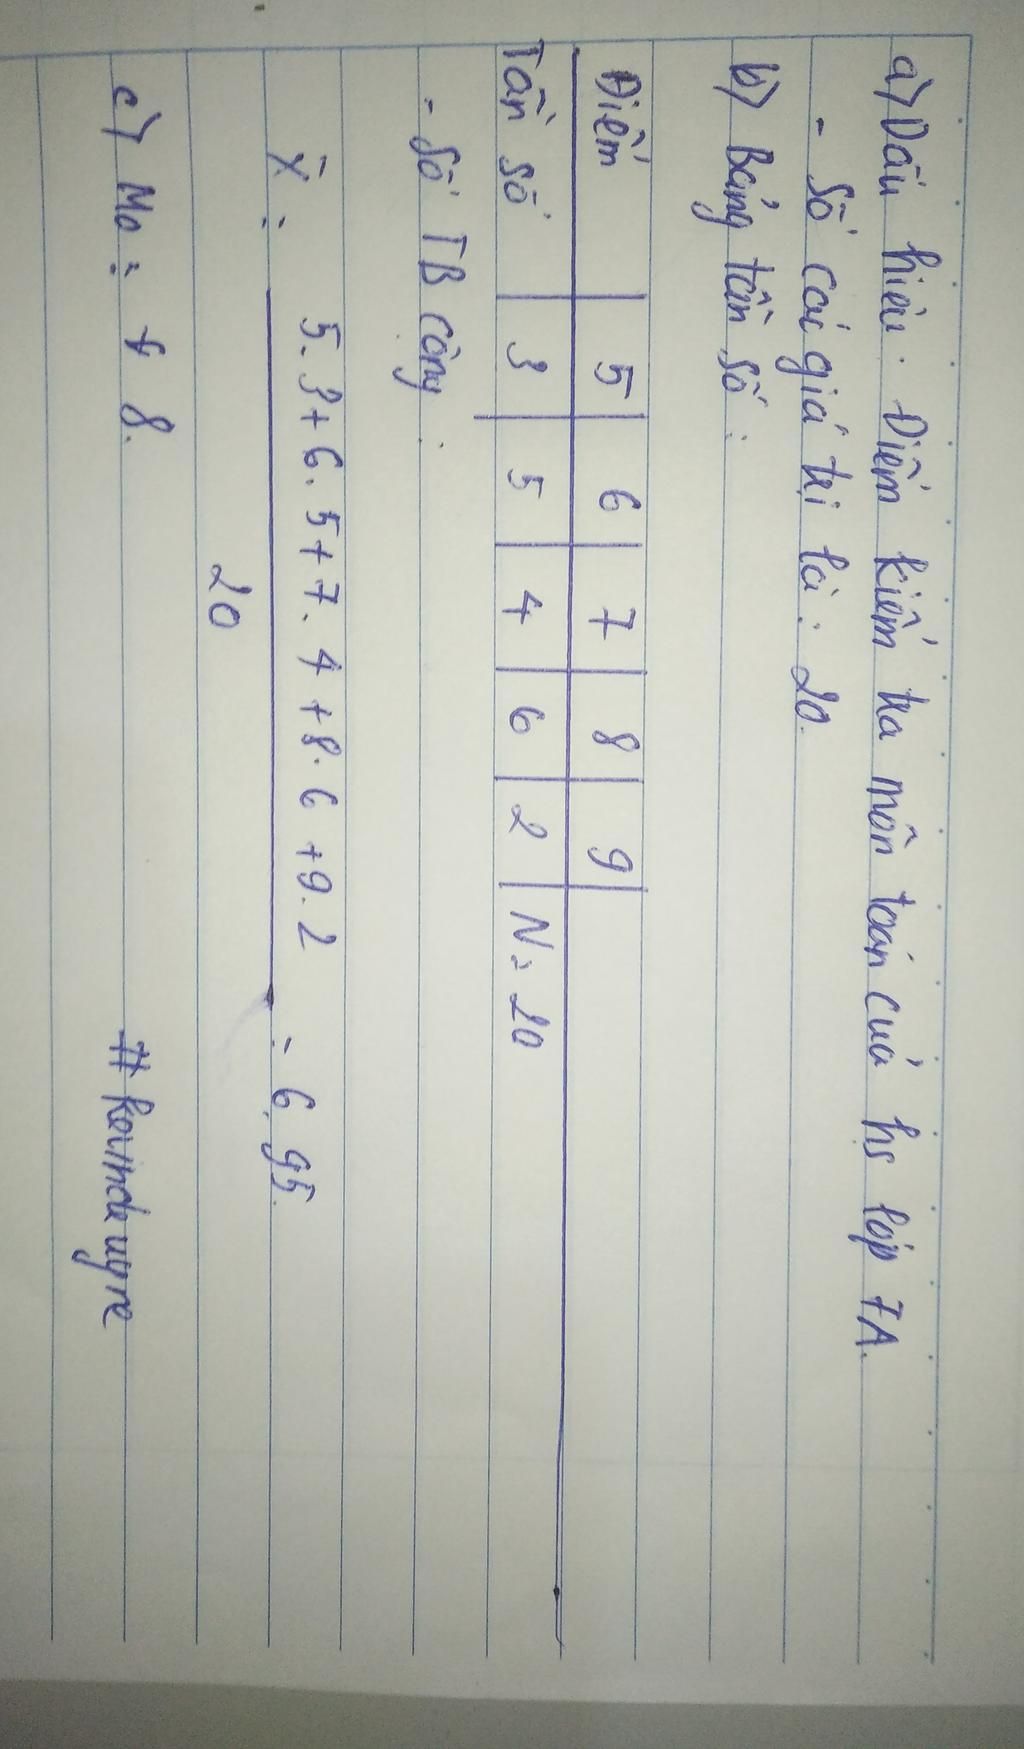 a) Dấu hiệu: Điểm kiểm tra môn toán của hs lớp 7A.
- Số các giá trị là: 20.
b) Bảng tần số:
Điểm 5 6 7 8 9
Tần số 3 5 4 6 2 N = 20
- Số TB cộng:
X̄ = 5.3+6.5+7.4+8.6+9.2 = 6,95.
20
c) Mo = 8.